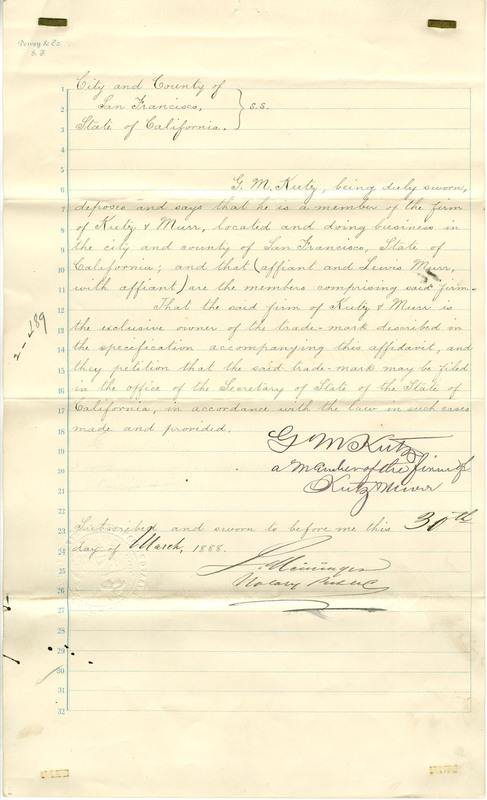 Dewey & Co.
S. F.
1 City and County of
2 San Francisco, } s.s.
3 State of California.
4
5
6 G. M. Kutz, being duly sworn,
7 deposes and says that he is a member of the firm
8 of Kutz & Murr, located and doing business in
9 the city and county of San Francisco, State of
10 California; and that (affiant and Lewis Murr,
11 with affiant) are the members comprising said firm.
12 That the said firm of Kutz & Murr is
13 the exclusive owner of the trade-mark described in
14 the specification accompanying this affidavit, and
15 they petition that the said trade-mark may be filed
16 in the office of the Secretary of State of the State of
17 California, in accordance with the law in such cases
18 made and provided.
G M Kutz
19
20 a Member of the firm of
21 Kutz & Murr
22
23 Subscribed and sworn to before me this 30th
24 day of March, 1888.
25 J. Meininger
26 Notary Public
27
28
29
30
31
32
2-289